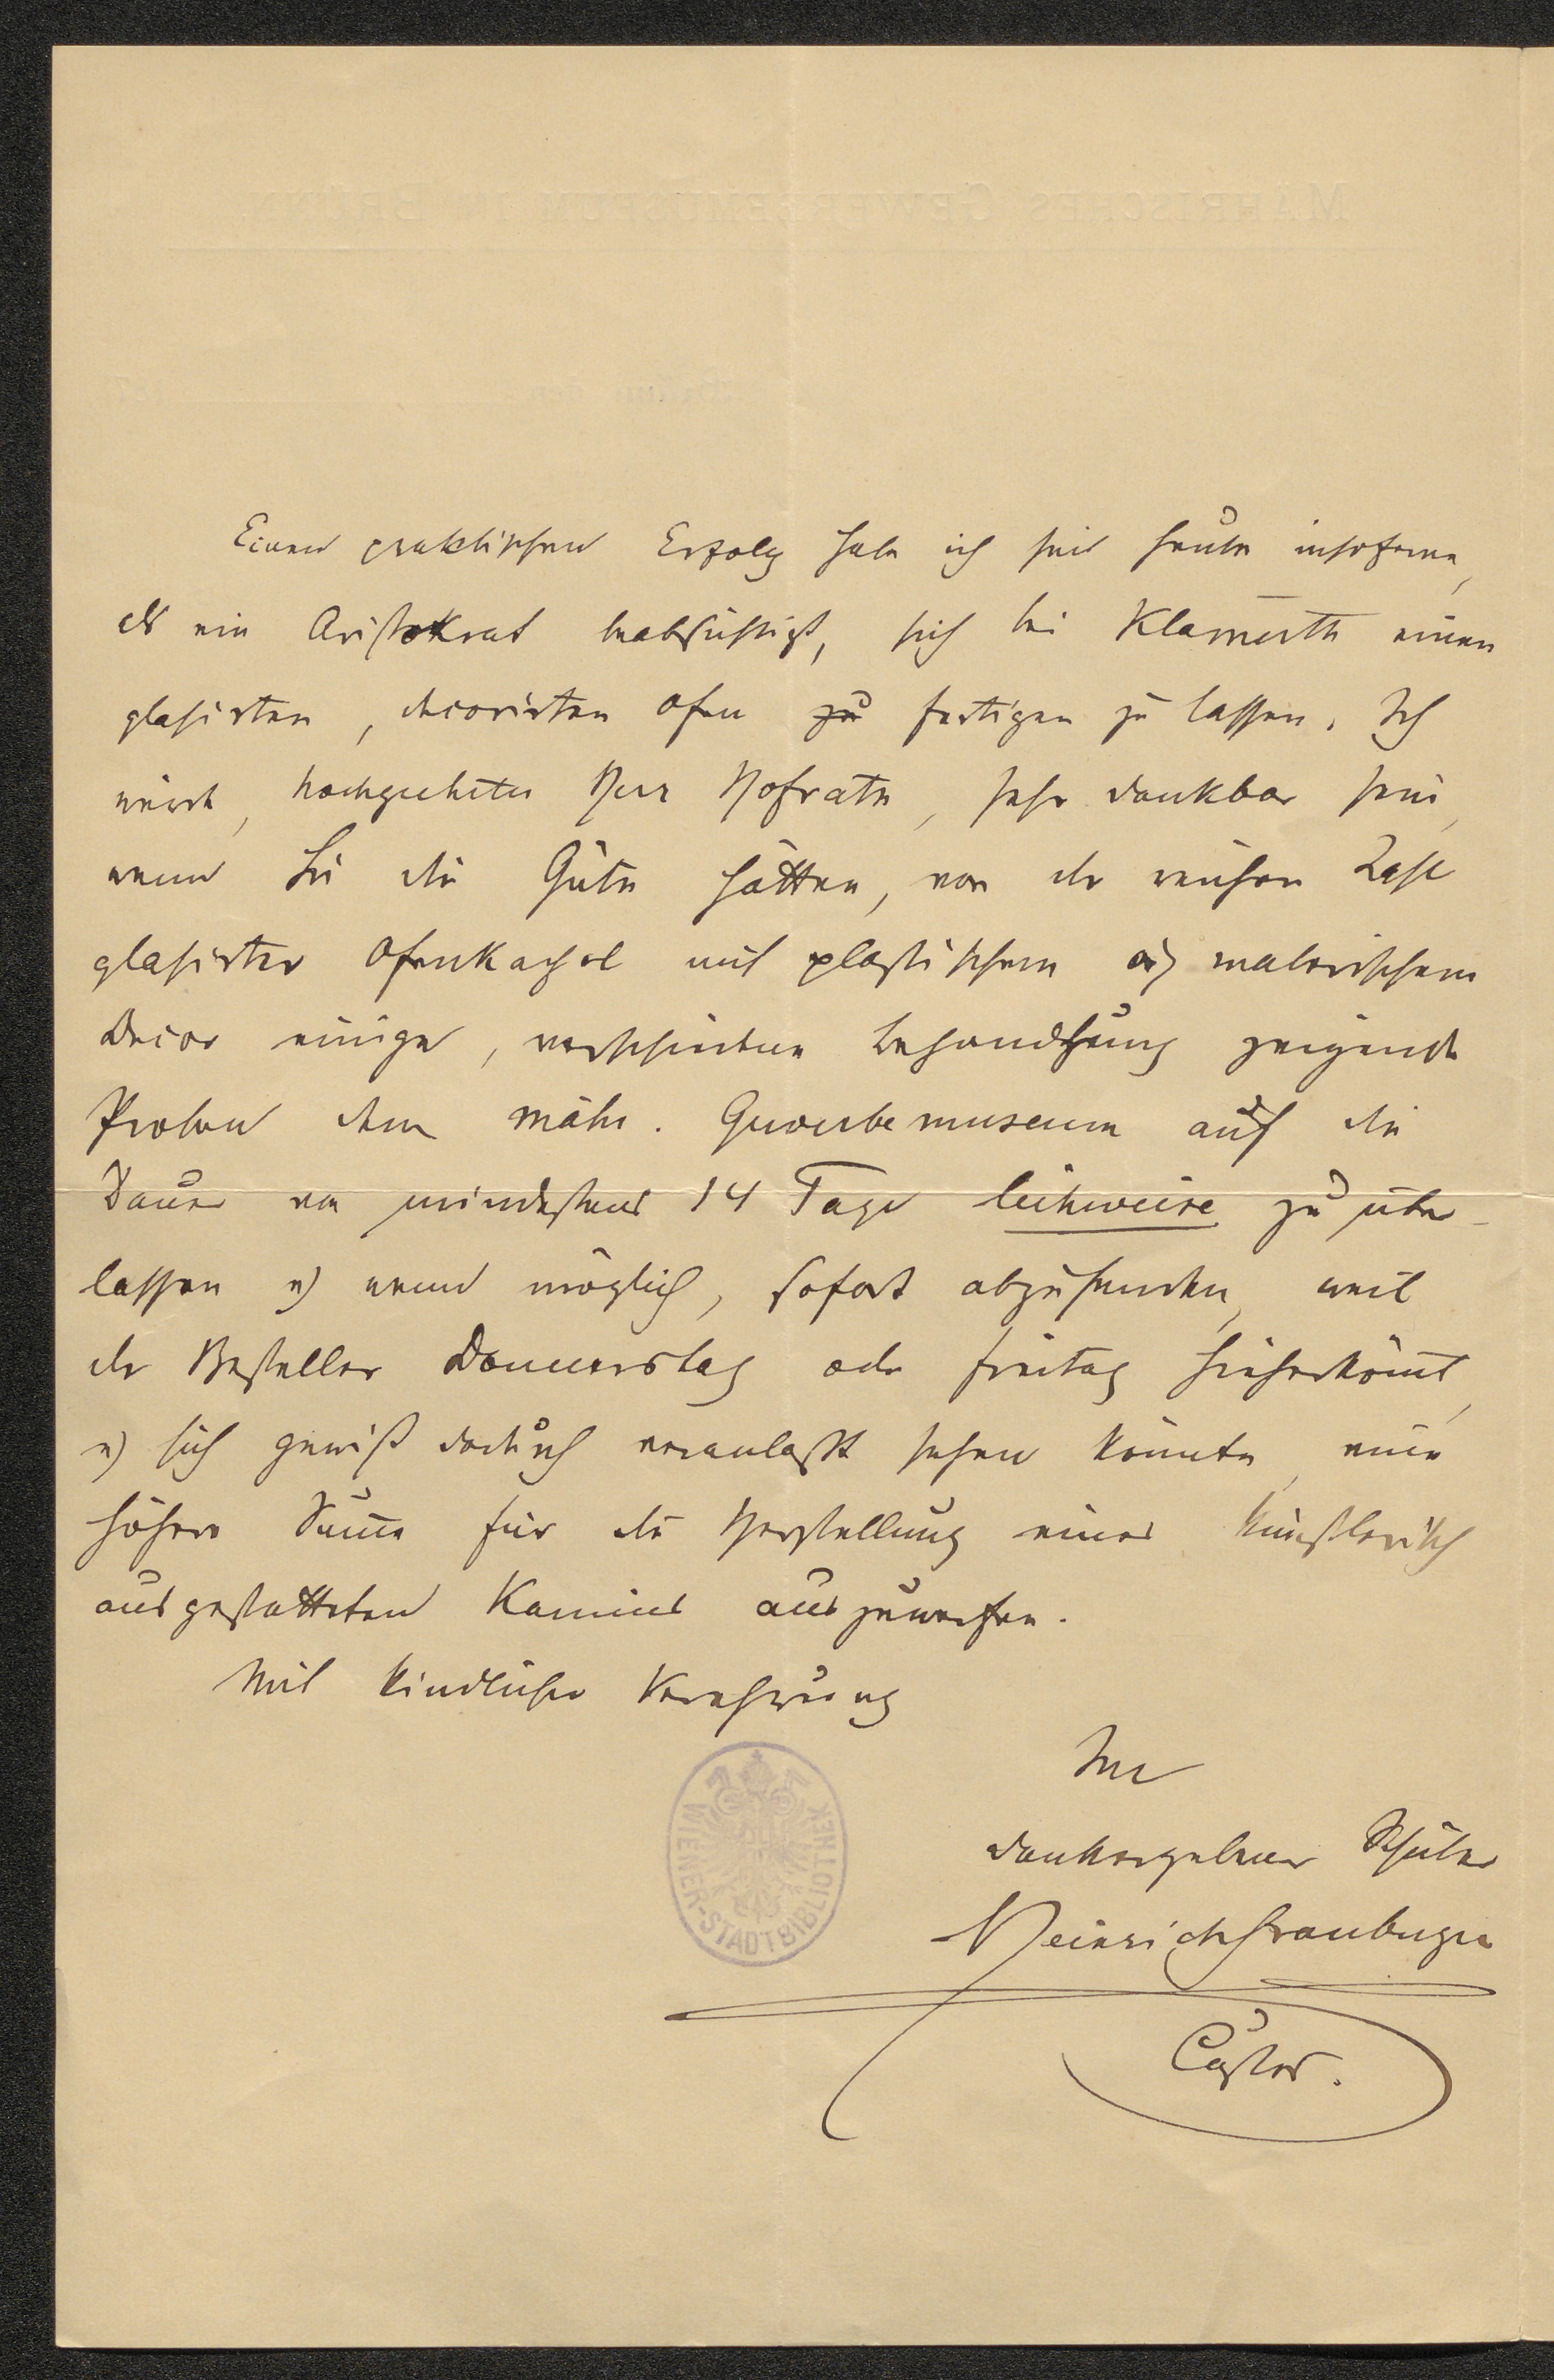 Einen praktischen Erfolg habe ich seit heute insoferne,
als ein Aristokrat beabsichtigt, sich bei Klammerth einen
glasirten, decorirten Ofen zu fertigen zu lassen. Ich
würde, hochgeehrter Herr Hofrath, sehr dankbar sein,
wenn Sie die Güte hätten, von der reichen Zahl
glasirter Ofenkachel mit plastischem od malerischem
Decor einige, verschiedene Behandlung zeigende
Proben dem mähr. Gewerbemuseum auf die
Dauer von mindestens 14 Tage leihweise zu über-
lassen u) wenn möglich, sofort abzusenden, weil
der Besteller Donnerstag oder Freitag hieherkömmt,
u) sich gewiß dadurch veranlaßt sehen könnte, eine
höhere Summe für die Herstellung eines künstlerisch
ausgestatteten Kamins auszuwerfen.
Mit kindlicher Verehrung
Ihr
dankergebener Schüler
Heinrich Frauberger
Custos.
WIENER-STADTBIBLIOTHEK